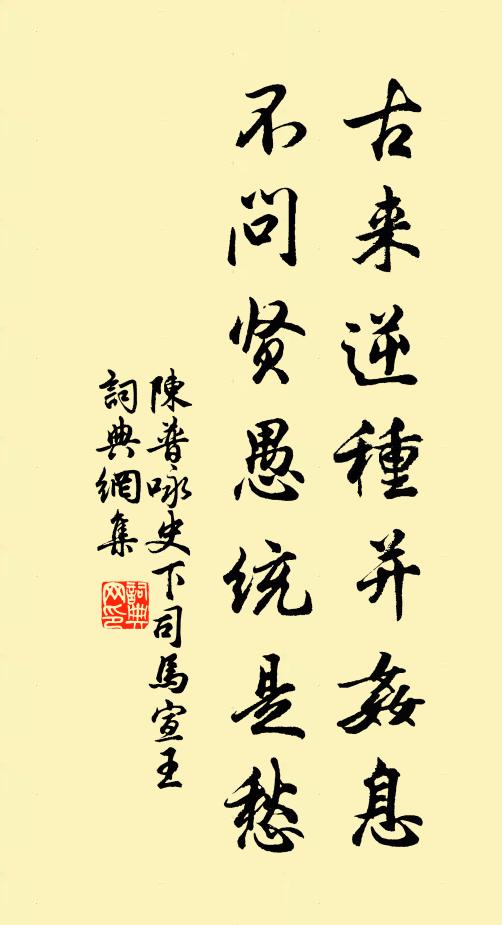 古来逆種并姦息
不问贤愚统是愁
陳普咏史下司馬宣王
詞典網集
詞典网印